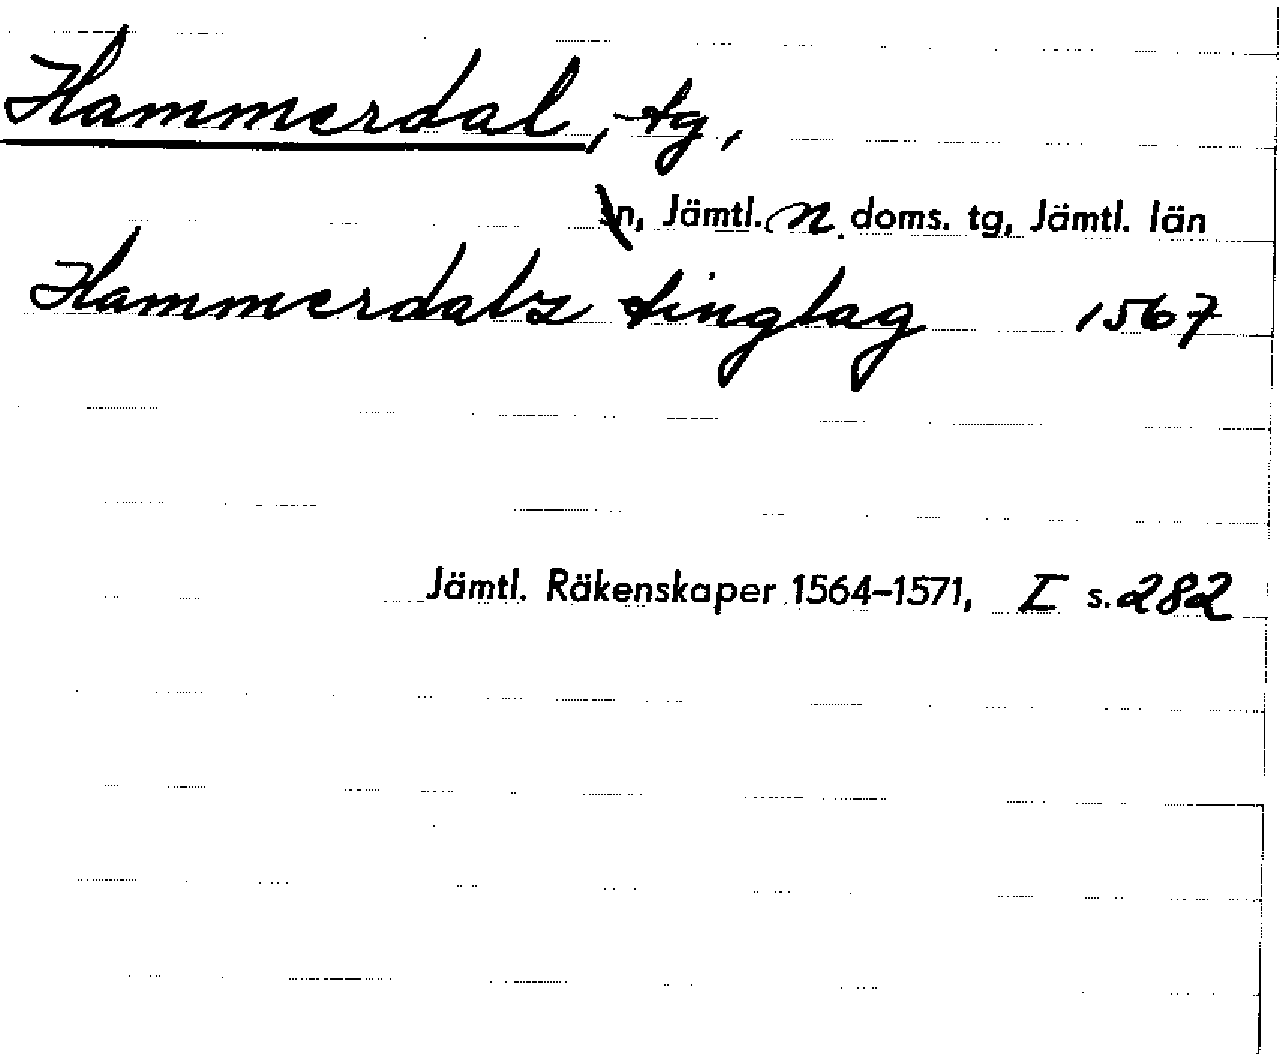 Hammerdal, tg,
sn, Jämtl. n doms. tg, Jämtl. län
Hammerdalz tinglag 1567
Jämtl. Räkenskaper 1564–1571, I s. 282